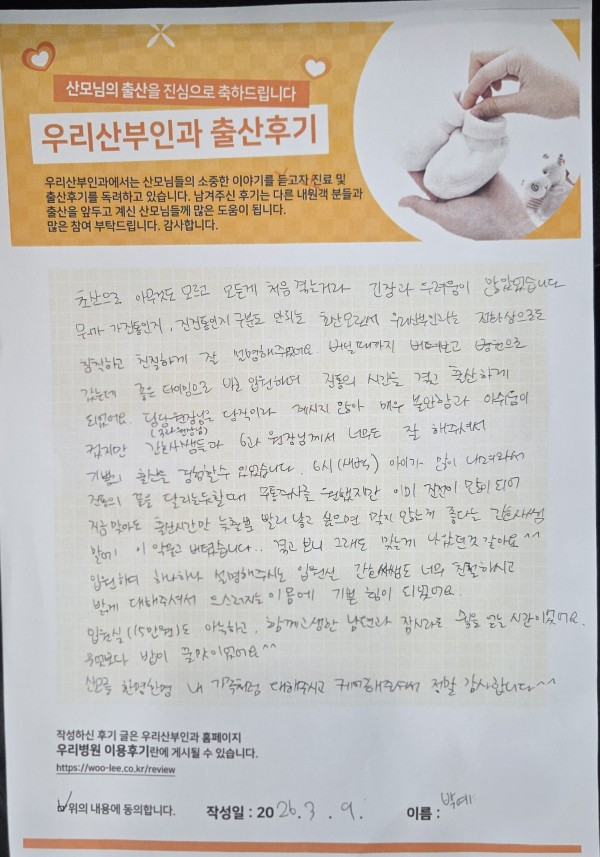 산모님의 출산을 진심으로 축하드립니다
우리산부인과 출산후기
우리산부인과에서는 산모님들의 소중한 이야기를 듣고자 진료 및
출산후기를 독려하고 있습니다. 남겨주신 후기는 다른 내원객 분들과
출산을 앞두고 계신 산모님들께 많은 도움이 됩니다.
많은 참여 부탁드립니다. 감사합니다.
초산으로 아무것도 모르고 모든게 처음 겪는거라 긴장과 두려움이 많았었습니다
뭐가 가진통인지, 진진통인지 구분도 안되는 초산모로서 우리산부인과는 전화상으로도
침착하고 친절하게 잘 설명해주셨어요. 버틸때까지 버텨보고 병원으로
갔는데 좋은 타이밍으로 바로 입원하며 진통의 시간을 겪고 출산하게
되었어요. 담당원장님은 당직이라 계시지 않아 매우 불안함과 아쉬움이
컸지만 간호사쌤들과 6과 원장님께서 너무도 잘 해주셔서
기쁨의 출산을 경험할수 있었습니다. 6시(새벽) 아이가 많이 내려와서
진통의 끝을 달리는듯할때 무통주사를 원했지만 이미 진전이 많이 되어
지금 맞아도 출산시간만 늦춰질뿐 빨리 낳고 싶으면 맞지 않는게 좋다는 간호사쌤
말에 이 악물고 버텼습니다.. 겪고 보니 그래도 맞는게 나았던것 같아요^^
입원하며 하나하나 설명해주시는 입원실 간호사쌤도 너무 친절하시고
밝게 대해주셔서 으스러지는 이 몸에 기쁨 힘이 되었어요.
입원실(15만원)도 아늑하고, 함께고생한 남편과 잠시라도 숨을 얻는 시간이었어요.
무엇보다 밥이 꿀맛이었어요^^
산모를 한명한명 내 가족처럼 대해주시고 케어해주셔서 정말 감사합니다^^
작성하신 후기 글은 우리산부인과 홈페이지
우리병원 이용후기란에 게시될 수 있습니다.
https://woo-lee.co.kr/review
위의 내용에 동의합니다. 작성일 : 2026. 3. 9. 이름 : 박예